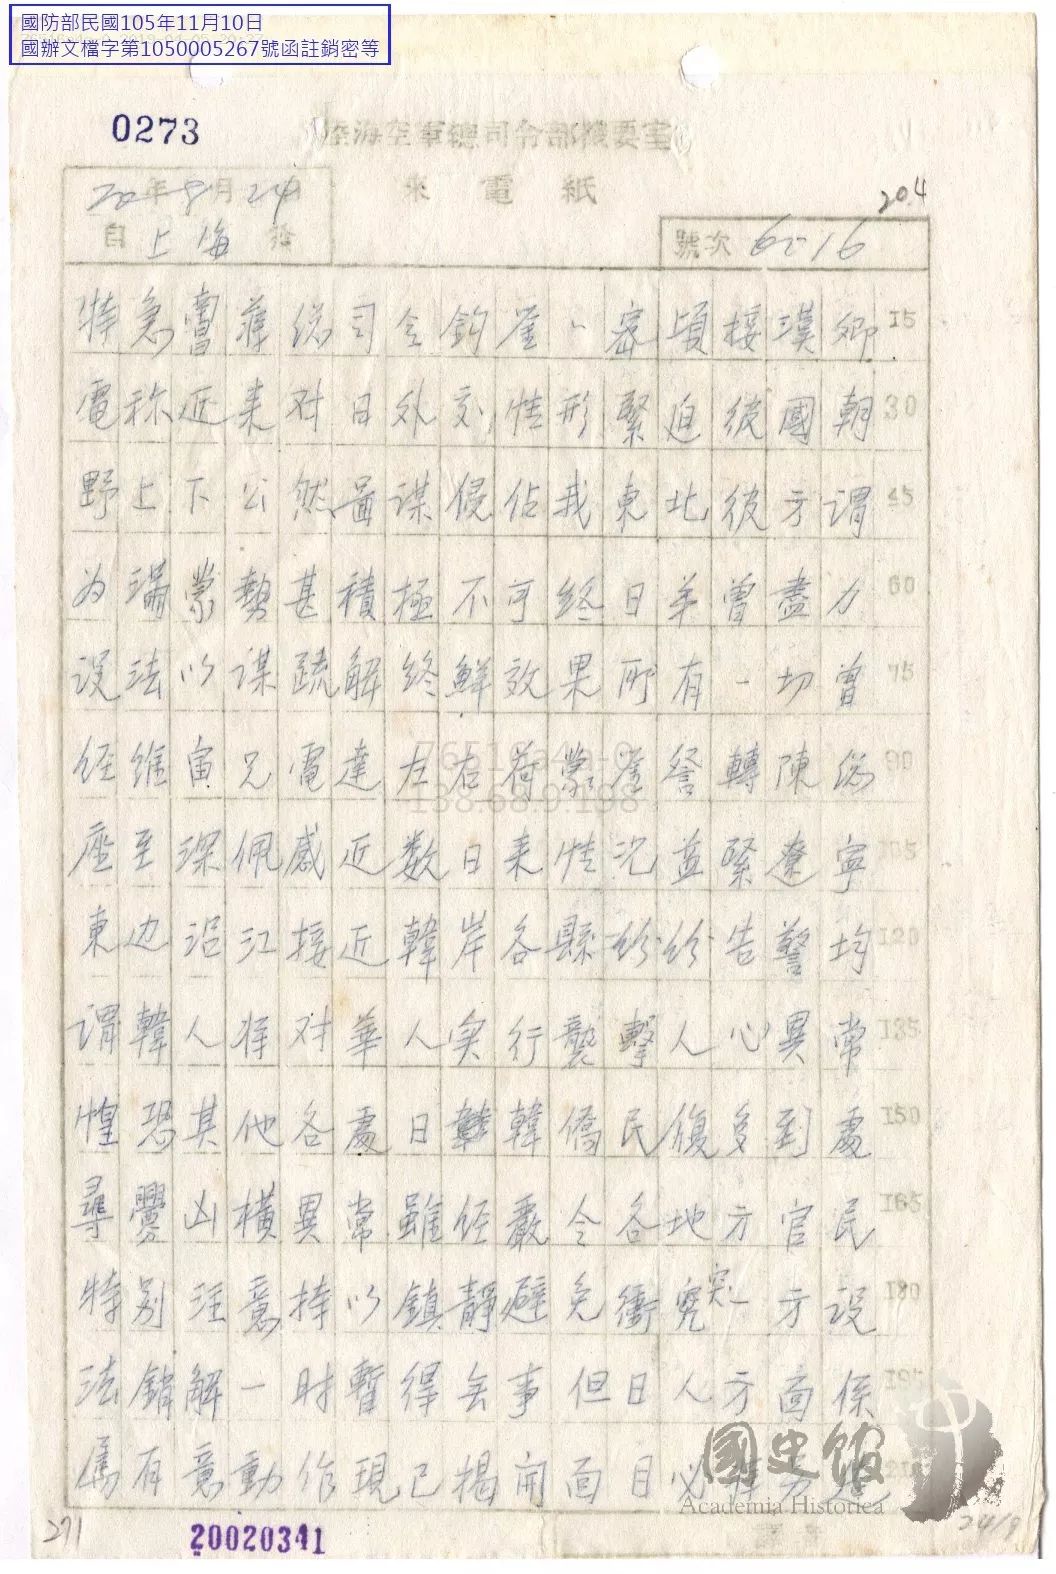 國防部民國105年11月10日
國辦文檔字第1050005267號函註銷密等
0273
陸海空軍總司令部機要室
來電紙
20年8月24日
自上海發
20.4
號次 6516
特急南蔣總司令鈞鉴、密頃接漢卿 15
電称近来对日外交情形緊迫彼國朝 30
野上下公然圖謀侵佔我東北彼方謂 45
为滿蒙勢甚積極不可终日弟曾盡力 60
设法以谋疏解终鮮效果所有一切曾 75
经維宙兄電達左右荷蒙鉴詧轉陳總 90
座至深佩感近数日来情況益緊遼寧 105
東边沿江接近韓岸各縣纷纷告警均 120
谓韓人将对華人实行襲擊人心異常 135
惶恐其他各處日韓僑民復多到處 150
尋釁凶横異常雖经嚴令各地方官民 165
特别注意持以鎮静避免衝突一方设 180
法銷解一时暫得无事但日人方面係 195
属有意動作現已揭開面目必
國史館
Academia Historica
271
20020341
24/9
76510a4a-0
138.68.9.198